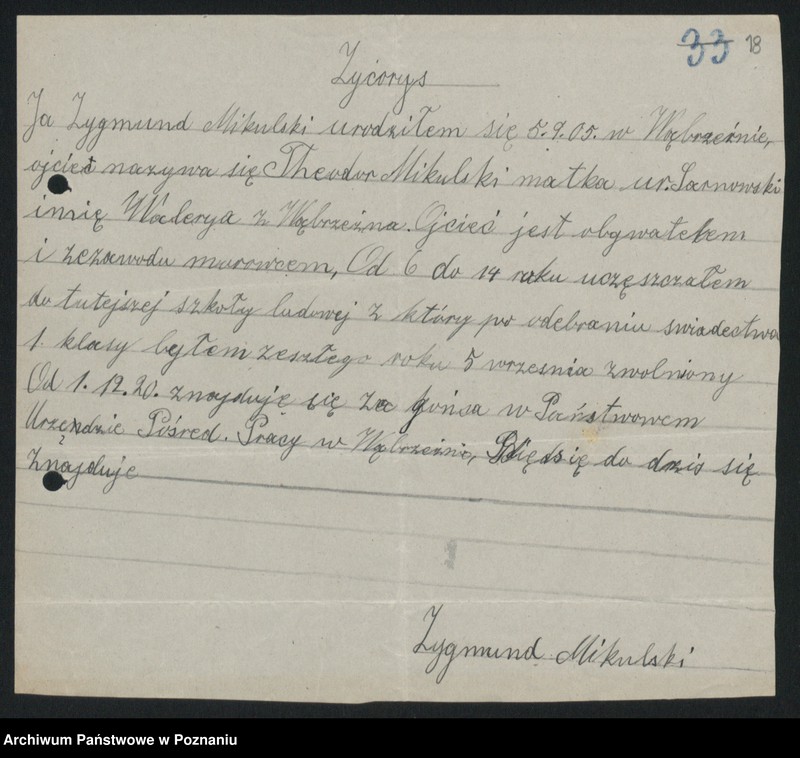 33 18
Zyćorys
Ja Zygmund Mikulski urodziłem się 5.9.05. w Wąbrzeźnie,
ojciec nazywa się Theodor Mikulski matka ur. Sarnowski
imię Walerya z Wąbrzeźna. Ojcieć jest obywatelem
i zezawodu murowcem, Od 6 do 14 roku uczęszczałem
do tutejszej szkoły ludowej z który po odebraniu swiadectwa
1. klasy byłem zeszłego roku 5 wrzesnia zwolniony
Od 1. 12. 20. znajduję się za gońsa w Państwowem
Urzęndzie Pośred. Pracy w Wąbrzeźnie, się do dzis się
Znajduje
Zygmund Mikulski
Archiwum Państwowe w Poznaniu